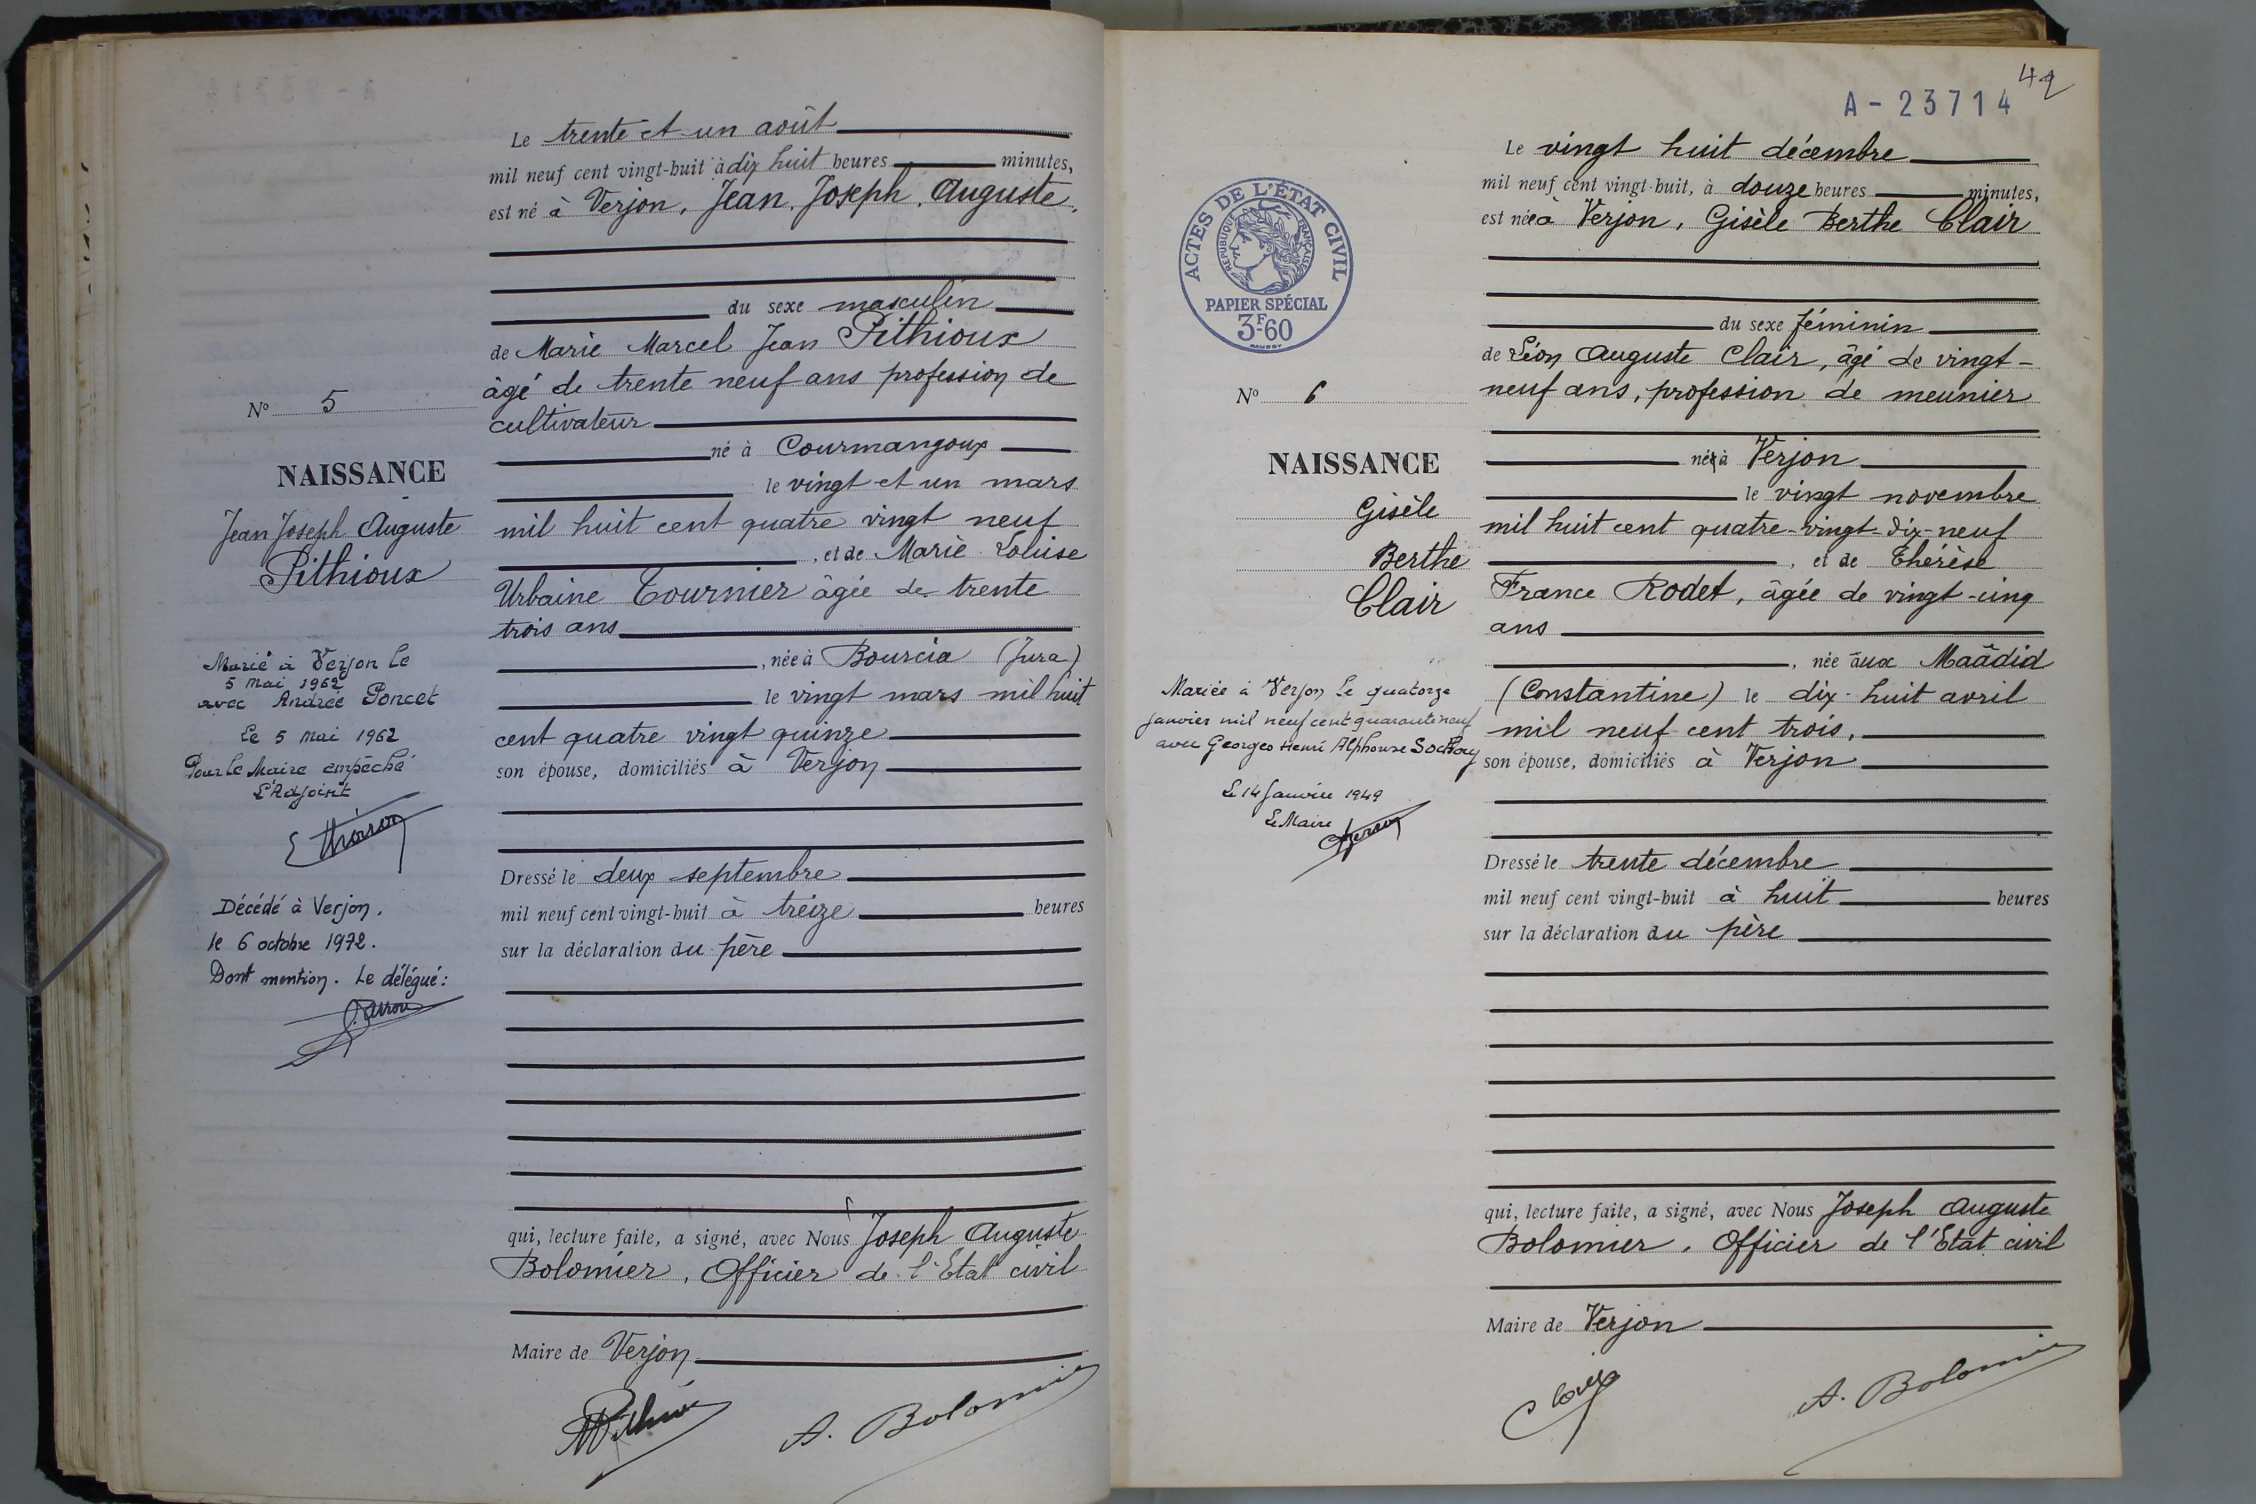 Le trente et un août
mil neuf cent vingt-huit à dix huit heures minutes,
est né à Verjon, Jean, Joseph, Auguste,
du sexe masculin
de Marie Marcel Jean Pithioux
âgé de trente neuf ans profession de
cultivateur
né à Courmangoux
le vingt et un mars
mil huit cent quatre vingt neuf
, et de Marie Louise
Urbaine Tournier âgée de trente
trois ans
, née à Bourcia (Jura)
le vingt mars mil huit
cent quatre vingt quinze
son épouse, domiciliés à Verjon
Dressé le deux septembre
mil neuf cent vingt-huit à treize heures
sur la déclaration du père
qui, lecture faite, a signé, avec Nous Joseph Auguste
Bolomier, Officier de l'Etat civil
Maire de Verjon
A. Bolomier
No 5
NAISSANCE
Jean Joseph Auguste
Pithioux
Marié à Verjon le
5 mai 1962
avec Andrée Poncet
Le 5 mai 1962
Pour le Maire empêché
L'Adjoint
Décédé à Verjon.
le 6 octobre 1972.
Dont mention. Le délégué :
42
A-23714
ACTES DE L'ÉTAT CIVIL
RÉPUBLIQUE FRANÇAISE
PAPIER SPÉCIAL
3F60
No 6
NAISSANCE
Gisèle
Berthe
Clair
Mariée à Verjon le quatorze
janvier mil neuf cent quarante neuf
avec Georges Henri Alphonse
Le 14 Janvier 1949
Le Maire
Le vingt huit décembre
mil neuf cent vingt-huit, à douze heures minutes,
est née à Verjon, Gisèle Berthe Clair
du sexe féminin
de Léon Auguste Clair, âgé de vingt-
neuf ans, profession de meunier
né à Verjon
le vingt novembre
mil huit cent quatre-vingt-dix-neuf
, et de Thérèse
France Rodet, âgée de vingt-cinq
ans
, née aux Maâdid
(Constantine) le dix-huit avril
mil neuf cent trois,
son épouse, domiciliés à Verjon
Dressé le trente décembre
mil neuf cent vingt-huit à huit heures
sur la déclaration du père
qui, lecture faite, a signé, avec Nous Joseph Auguste
Bolomier, Officier de l'Etat civil
Maire de Verjon
Clair
A. Bolomier